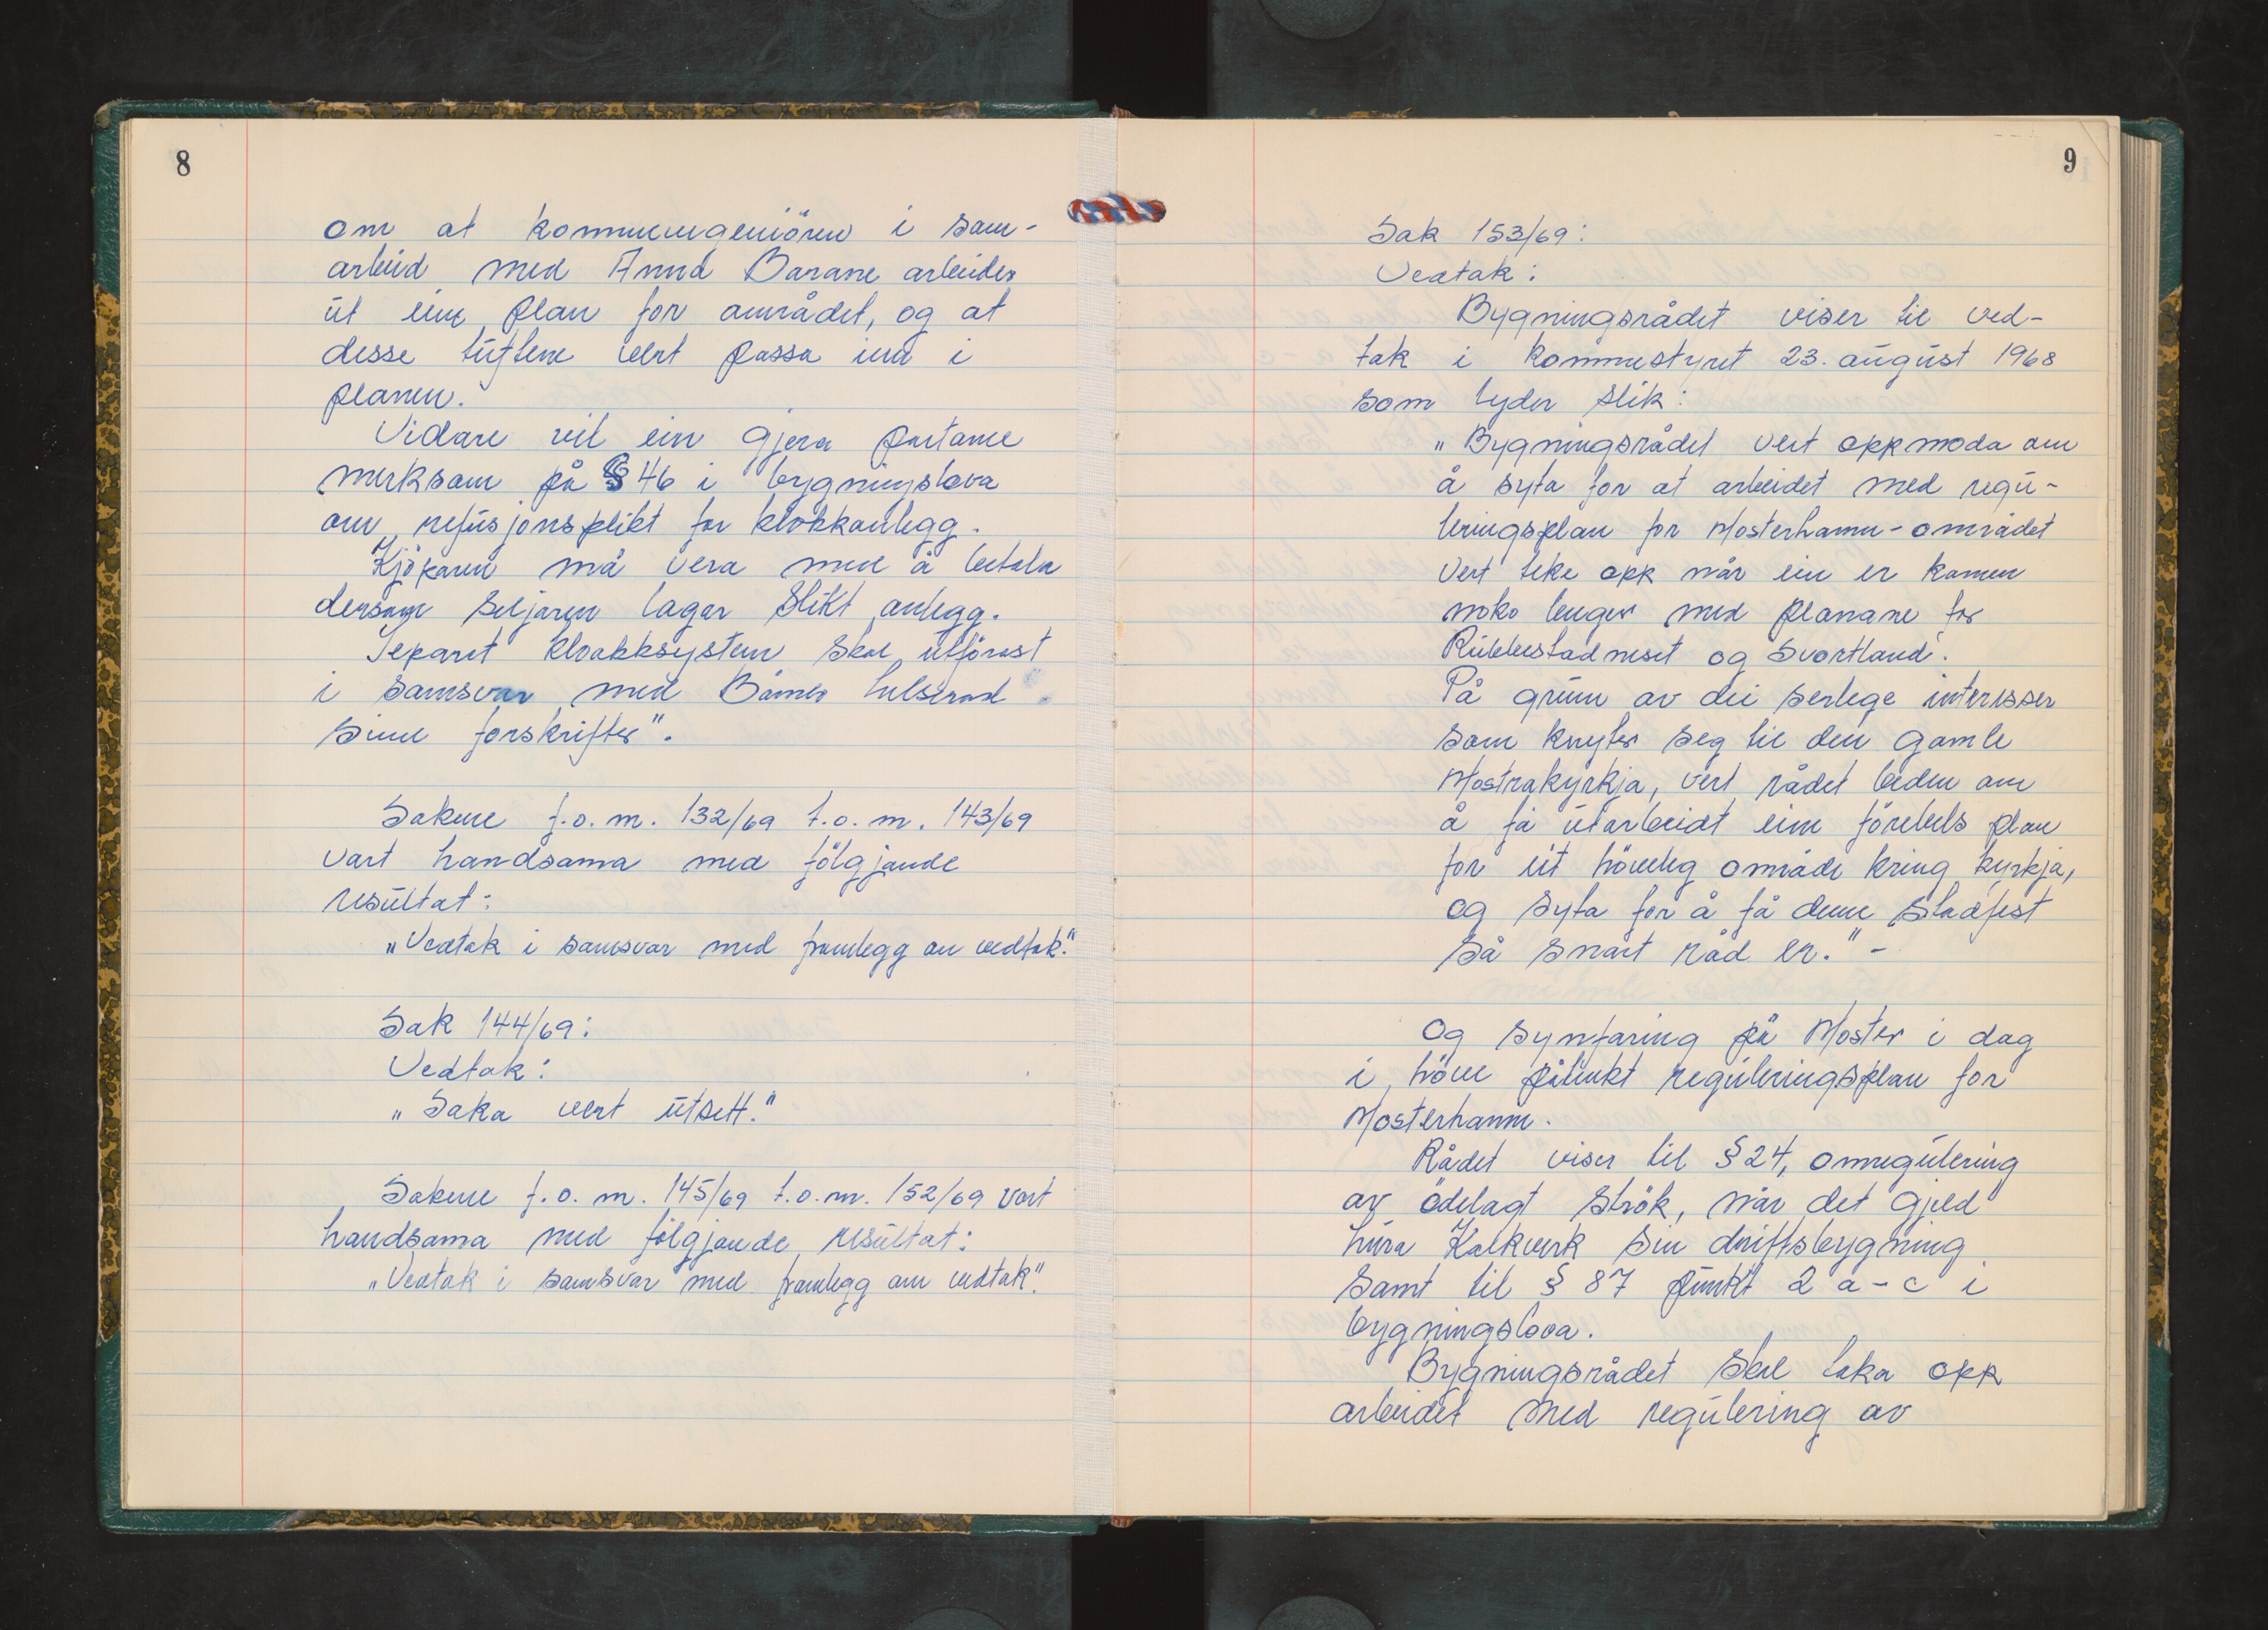 8
om at kommuneingeniören i sam-
arbeid med Amund Barane arbeider
ut ein plan for området, og at
desse tuftene vert passa inn i
planen.
Vidare vil ein gjera partane
merksam på § 46 i bygningslova
om refusjonsplikt for klokkanlegg.
Kjöparen må vera med å betala
dersom seljaren lagar slikt anlegg.
Separat kloakksystem skal utförast
i samsvar med Bömlo helseråd
sine forskrifter".
Sakene f.o.m. 132/69 t.o.m. 143/69
vart handsama med fölgjande
resultat:
„Vedtak i samsvar med framlegg om vedtak."
Sak 144/69:
Vedtak:
„Saka vert utsett."
Sakene f.o.m. 145/69 t.o.m. 152/69 vart
handsama med fölgjande resultat:
„Vedtak i samsvar med framlegg om vedtak".
9
Sak 153/69:
Vedtak:
Bygningsrådet viser til ved-
tak i kommestyret 23. august 1968
som lyder slik:
„Bygningsrådet vert oppmoda om
å syta for at arbeidet med regu-
leringsplan for Mosterhamn-området
vert teke opp når ein er komen
noko lenger med planane for
Rubbestadneset og Svortland.
På grunn av dei serlege interesser
som knyter seg til den gamle
Mostrakyrkja, vert rådet beden om
å få utarbeidt ein förebels plan
for eit höveleg område kring kyrkja,
og syta for å få denne stadfest
så snart råd er." -
og synfaring på Moster i dag
i höve påtenkt reguleringsplan for
Mosterhamn.
Rådet viser til § 24, omregulering
av ödelagt strök, når det gjeld
Kalkverk sin driftsbygning
samt til § 87 punkt 2 a-c i
bygningslova.
Bygningsrådet skal taka opp
arbeidet med regulering av